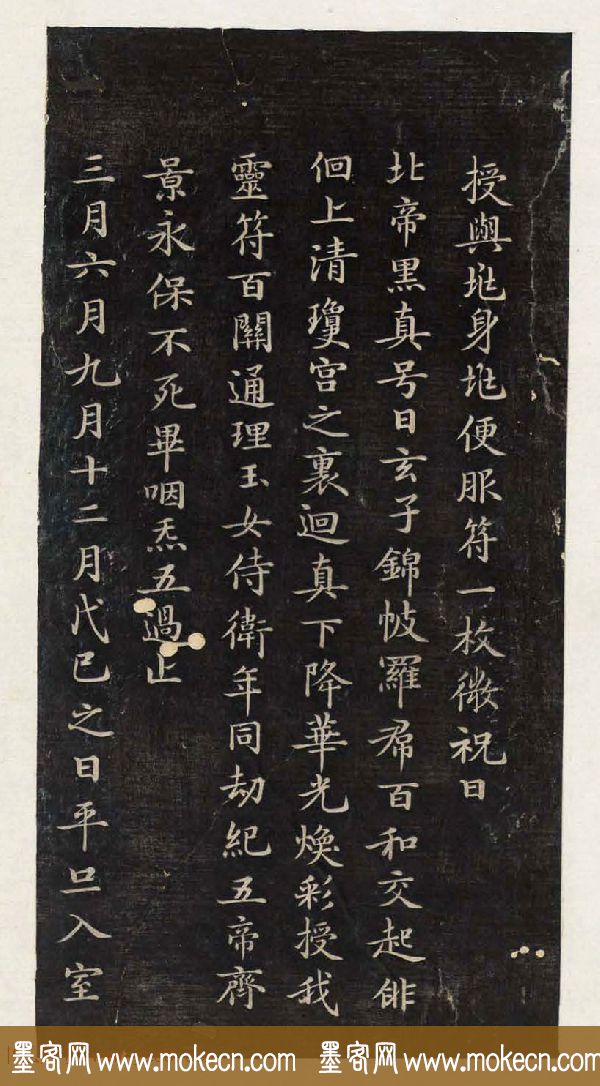 授與兆身兆便服符一枚微祝曰
北帝黑真号曰玄子錦帔羅帬百和交起俳
佪上清瓊宮之裏迴真下降華光煥彩授我
靈符百關通理玉女侍衛年同劫紀五帝齊
景永保不死畢咽炁五過止
三月六月九月十二月戊巳之日平旦入室
墨客网 www.mokecn.com 墨客网 www.mokecn.com